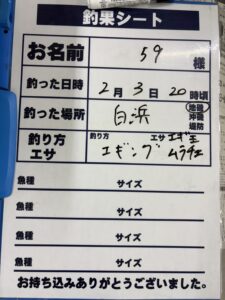 釣果シート
お名前 59 様
釣った日時 2月3日20時頃
釣った場所 白浜 地磯 沖磯 堤防
釣り方 エサ 釣り方 エギング エサ エギ王 ムラチェ
魚種 サイズ
魚種 サイズ
魚種 サイズ
魚種 サイズ
お持ち込みありがとうございました。